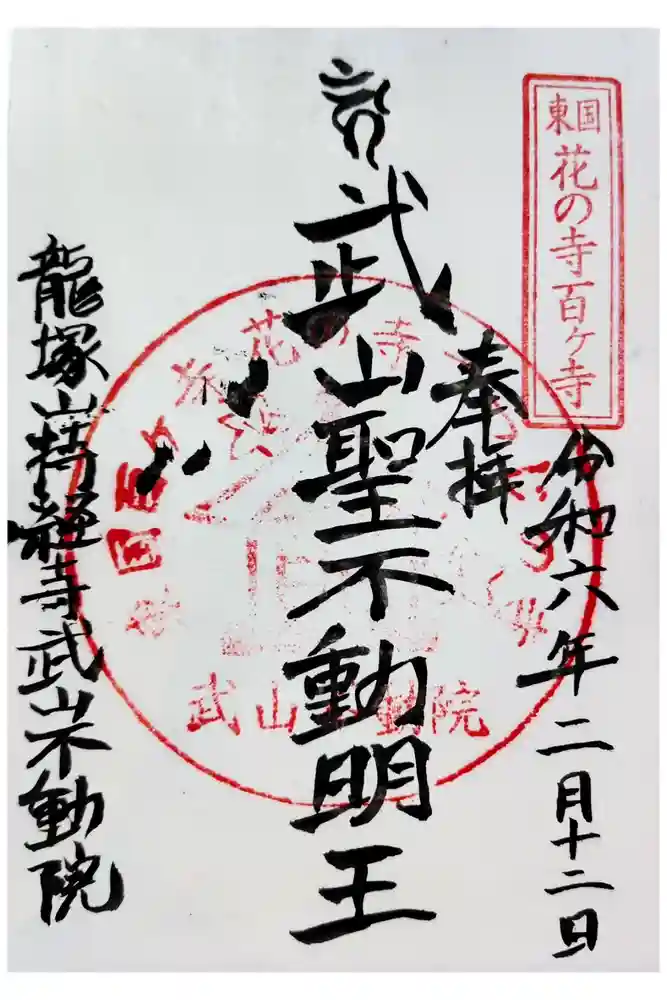 東国
花の寺百ヶ寺
令和六年二月十二日
奉拝
武山聖不動明王
龍塚山持経寺武山不動院
花の寺
武山不動院